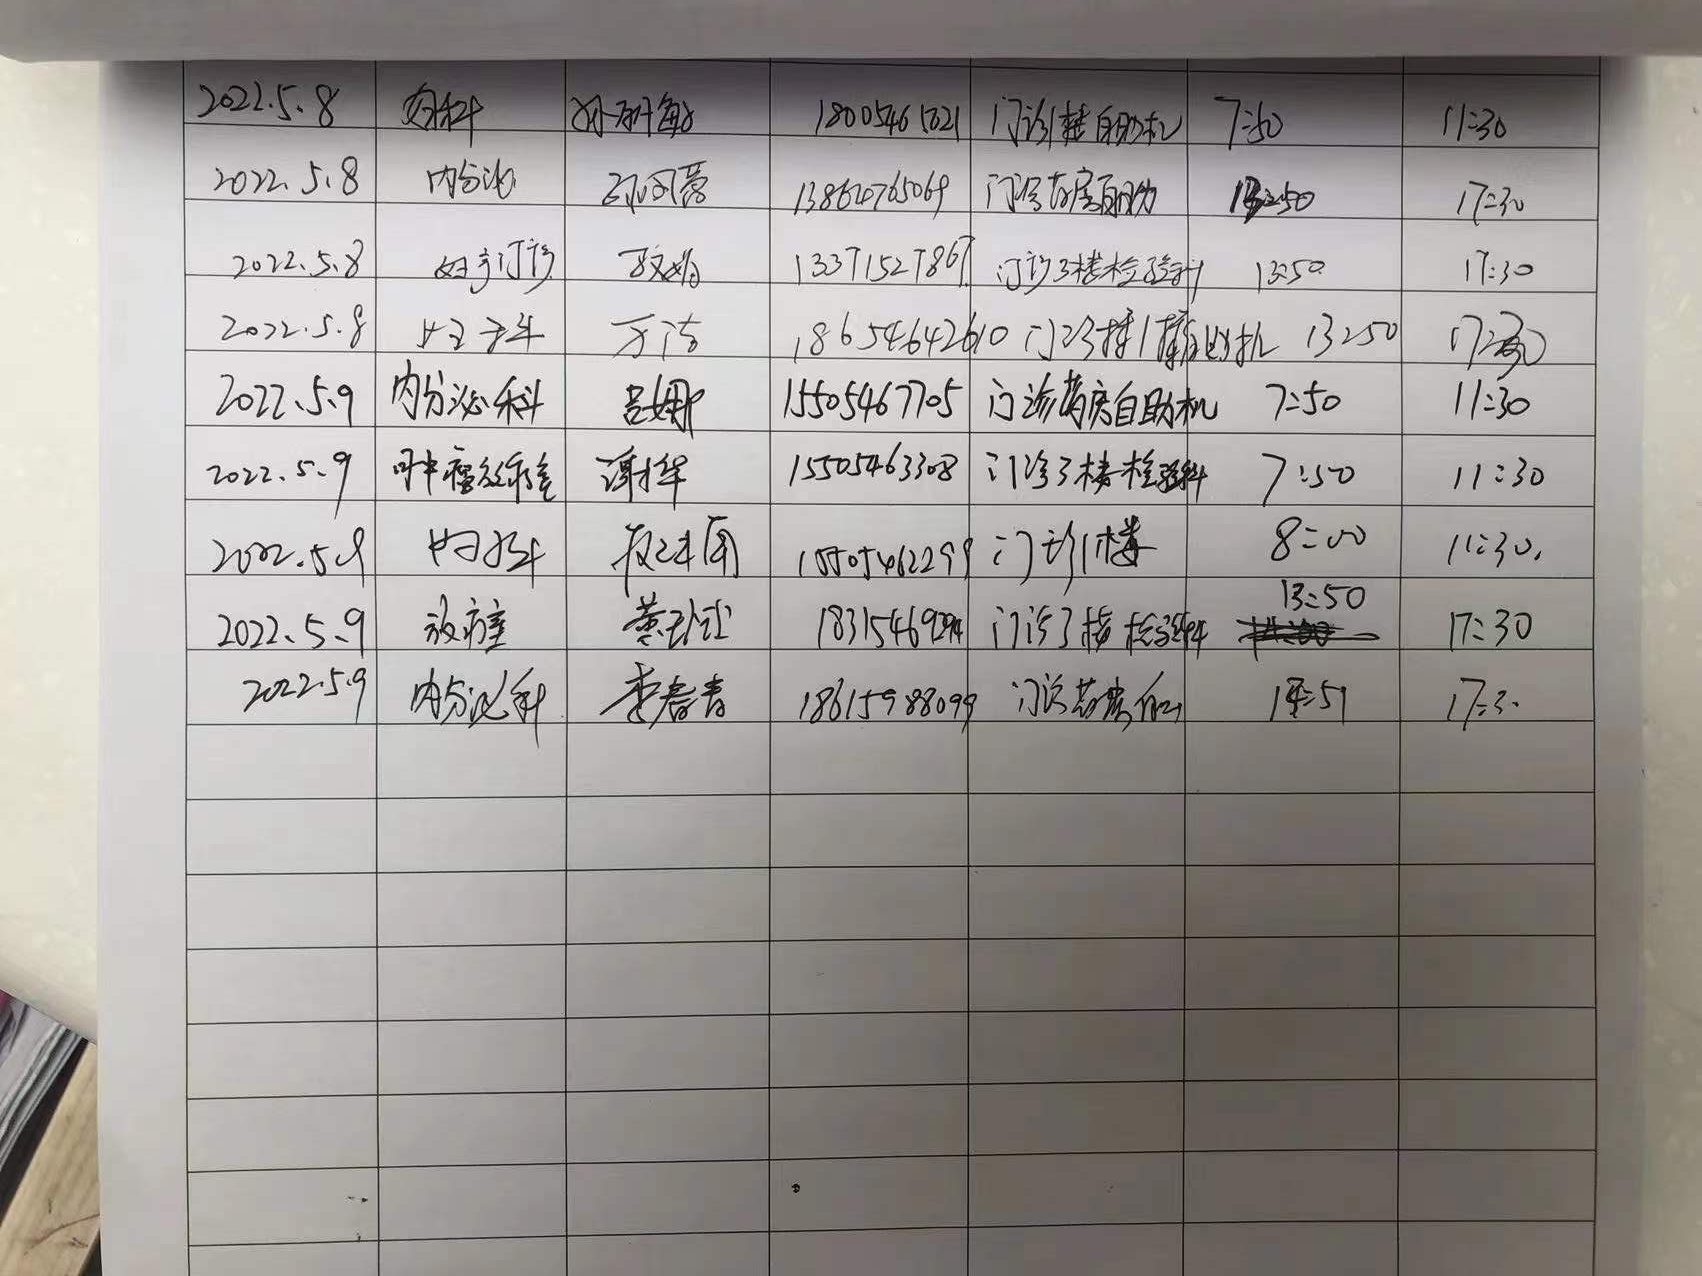 2022.5.8 妇科 18005461021 门诊1楼自助机 7:50 11:30
2022.5.8 内分泌 门诊药房自助 13:50 17:30
2022.5.8 妇产门诊 13371527867 门诊3楼检验科 13:50 17:30
2022.5.8 妇产科 万洁 18654642610 门诊楼1楼自助机 13:50 17:30
2022.5.9 内分泌科 吕娜 15505467705 门诊药房自助机 7:50 11:30
2022.5.9 谢华 15505463308 门诊3楼检验科 7:50 11:30
2022.5.9 妇科 15505462299 门诊1楼 8:00 11:30.
2022.5.9 放疗室 门诊3楼检验科 13:50 17:30
2022.5.9 内分泌科 李春青 18615988099 门诊药房 17:30